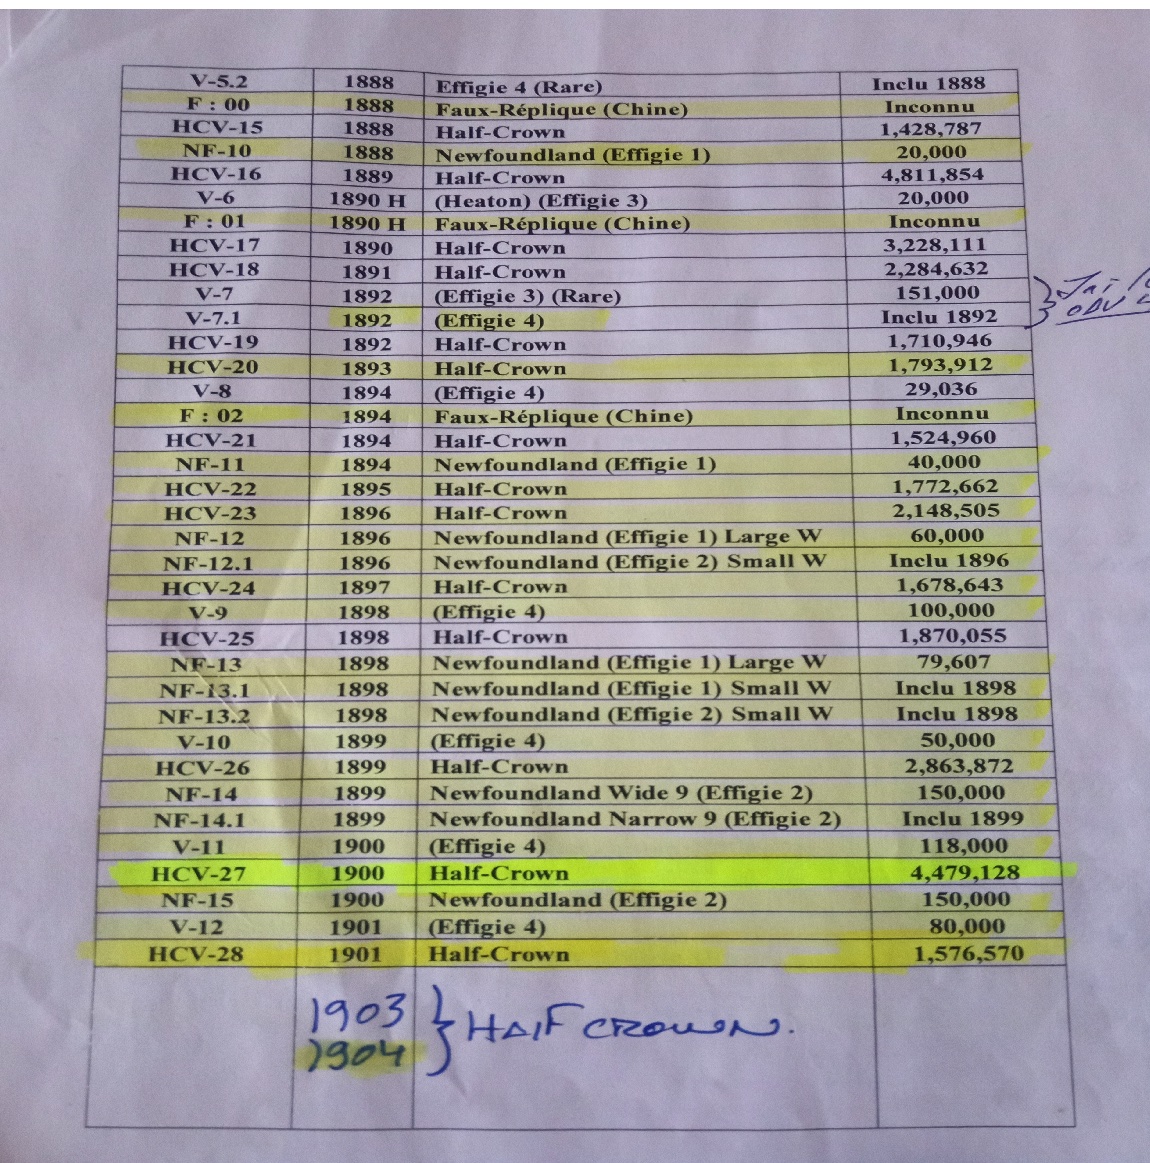 V-5.2 1888 Effigie 4 (Rare) Inclu 1888
F : 00 1888 Faux-Réplique (Chine) Inconnu
HCV-15 1888 Half-Crown 1,428,787
NF-10 1888 Newfoundland (Effigie 1) 20,000
HCV-16 1889 Half-Crown 4,811,854
V-6 1890 H (Heaton) (Effigie 3) 20,000
F : 01 1890 H Faux-Réplique (Chine) Inconnu
HCV-17 1890 Half-Crown 3,228,111
HCV-18 1891 Half-Crown 2,284,632
V-7 1892 (Effigie 3) (Rare) 151,000
V-7.1 1892 (Effigie 4) Inclu 1892
HCV-19 1892 Half-Crown 1,710,946
HCV-20 1893 Half-Crown 1,793,912
V-8 1894 (Effigie 4) 29,036
F : 02 1894 Faux-Réplique (Chine) Inconnu
HCV-21 1894 Half-Crown 1,524,960
NF-11 1894 Newfoundland (Effigie 1) 40,000
HCV-22 1895 Half-Crown 1,772,662
HCV-23 1896 Half-Crown 2,148,505
NF-12 1896 Newfoundland (Effigie 1) Large W 60,000
NF-12.1 1896 Newfoundland (Effigie 2) Small W Inclu 1896
HCV-24 1897 Half-Crown 1,678,643
V-9 1898 (Effigie 4) 100,000
HCV-25 1898 Half-Crown 1,870,055
NF-13 1898 Newfoundland (Effigie 1) Large W 79,607
NF-13.1 1898 Newfoundland (Effigie 1) Small W Inclu 1898
NF-13.2 1898 Newfoundland (Effigie 2) Small W Inclu 1898
V-10 1899 (Effigie 4) 50,000
HCV-26 1899 Half-Crown 2,863,872
NF-14 1899 Newfoundland Wide 9 (Effigie 2) 150,000
NF-14.1 1899 Newfoundland Narrow 9 (Effigie 2) Inclu 1899
V-11 1900 (Effigie 4) 118,000
HCV-27 1900 Half-Crown 4,479,128
NF-15 1900 Newfoundland (Effigie 2) 150,000
V-12 1901 (Effigie 4) 80,000
HCV-28 1901 Half-Crown 1,576,570
1903 HAlF CROWN.
1904